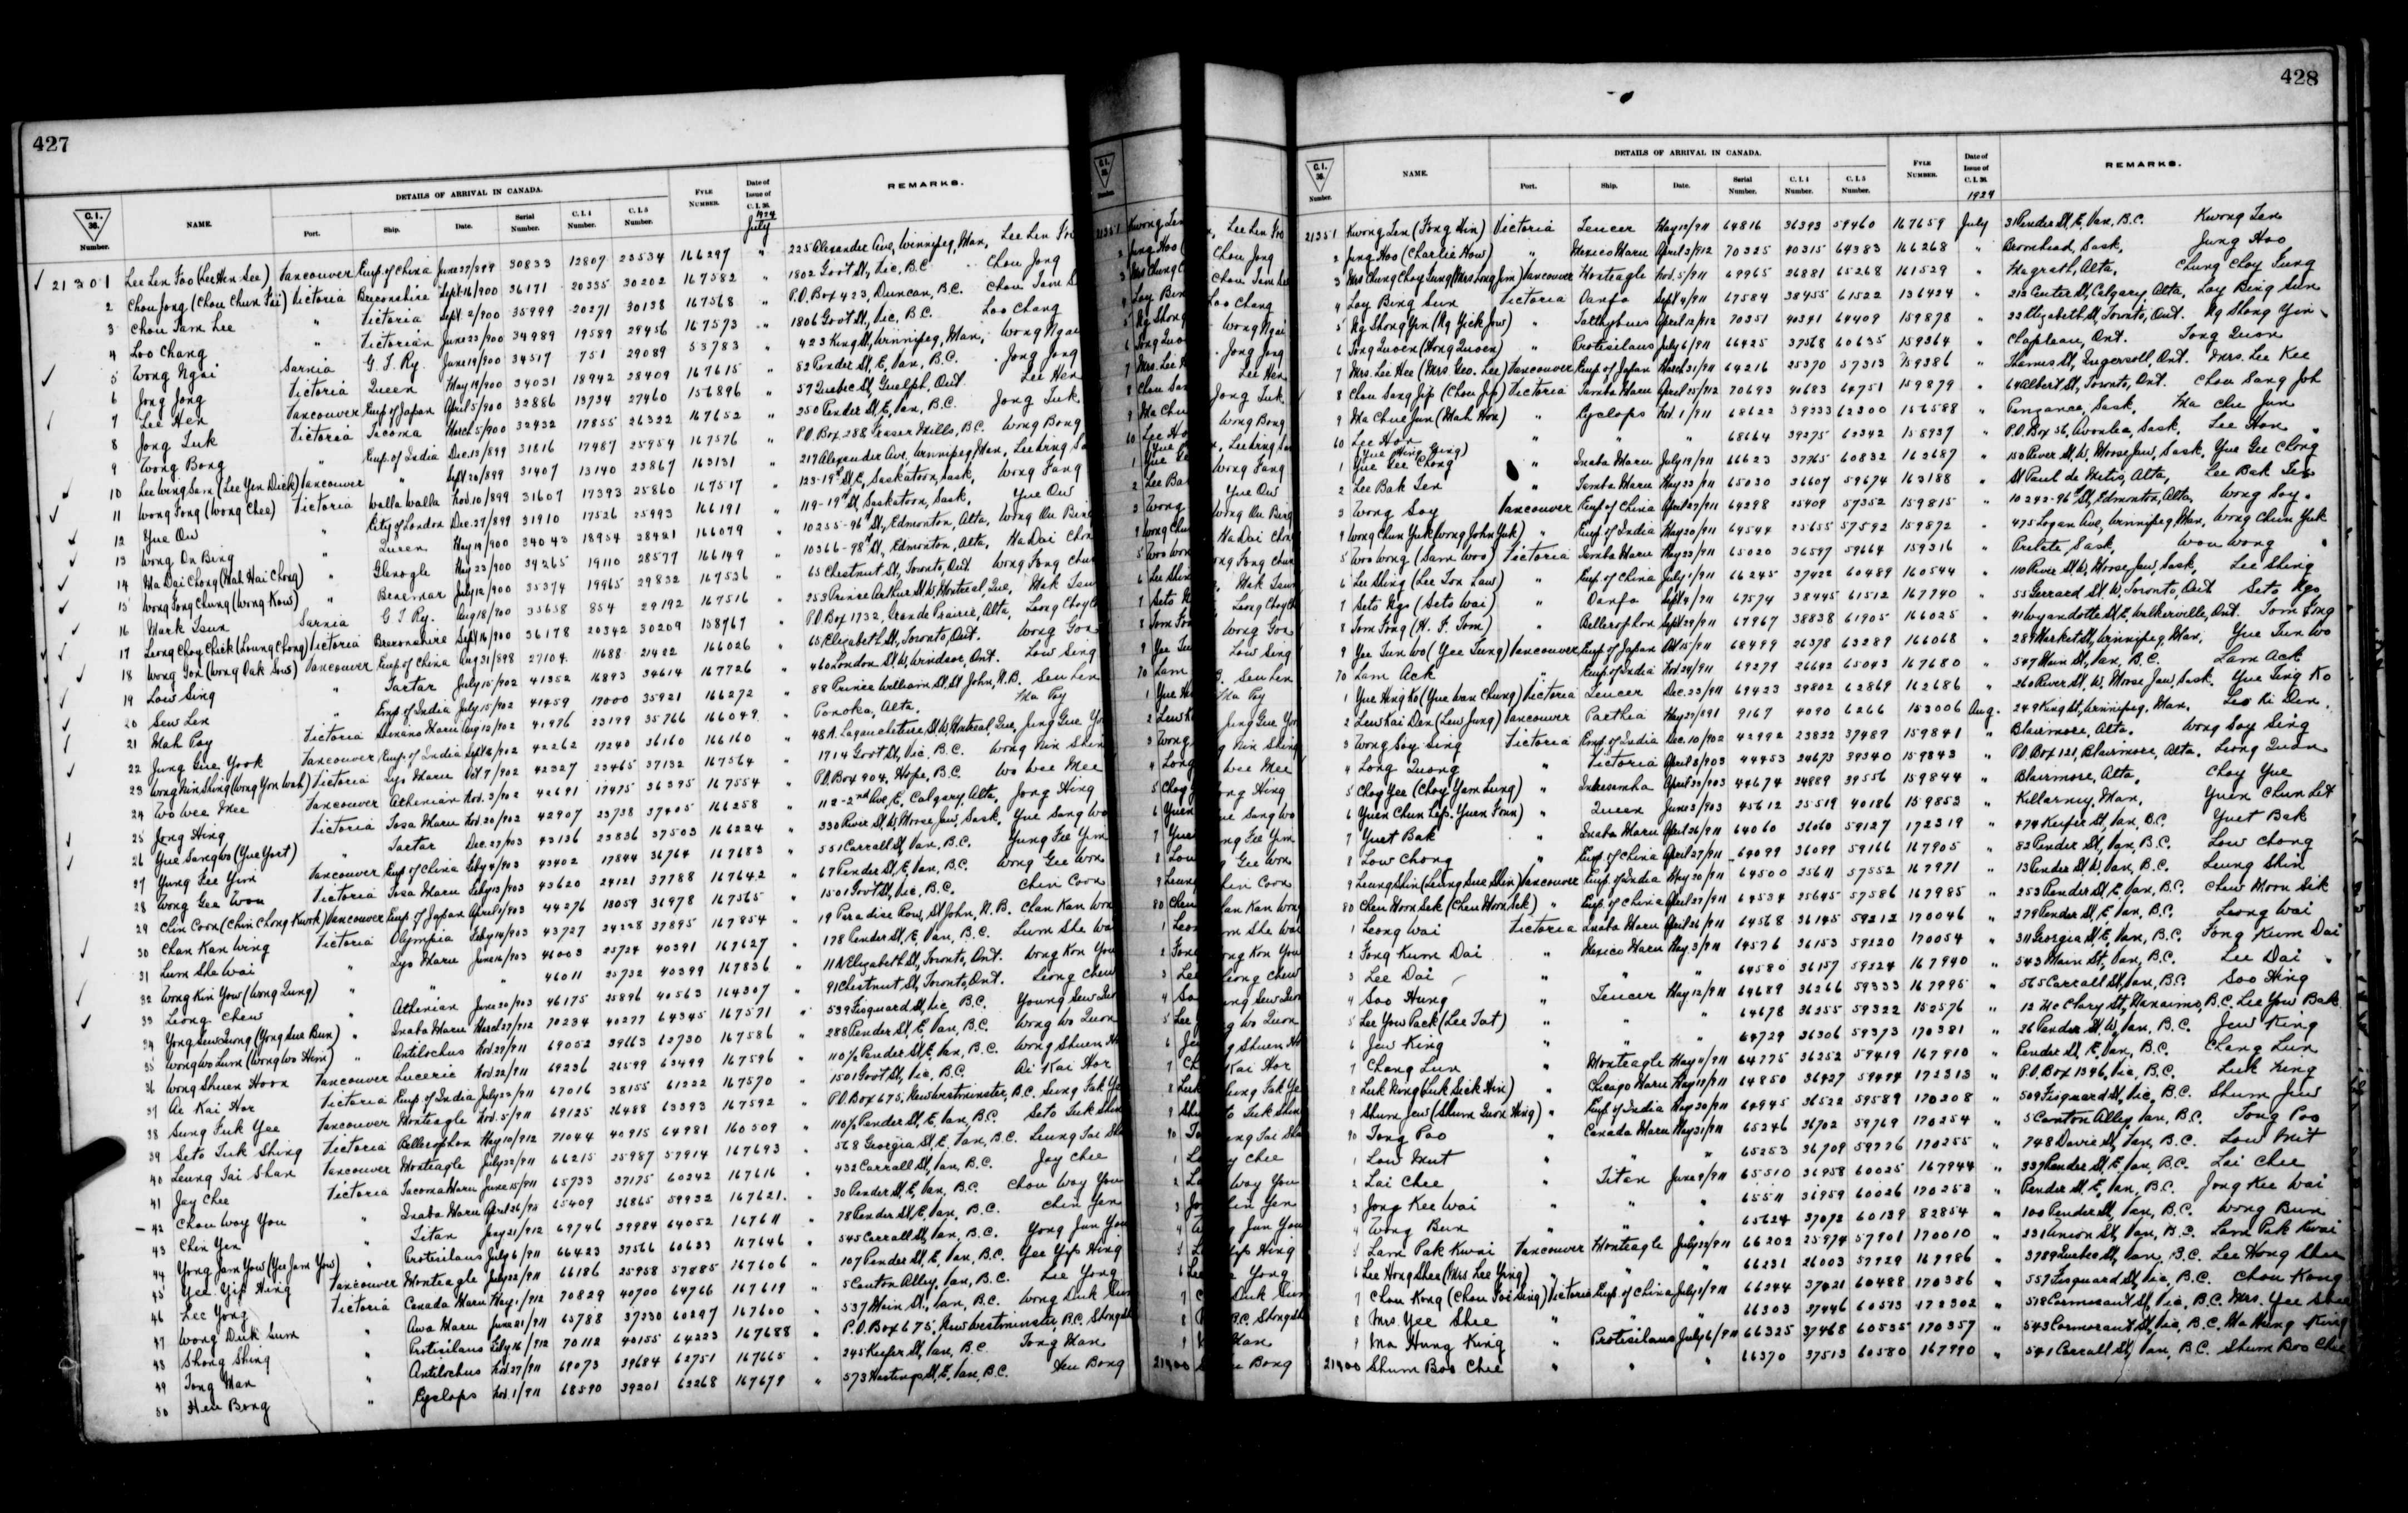 427
C.I. 36. Number. NAME. DETAILS OF ARRIVAL IN CANADA. Port. Ship. Date. Serial Number. C.I.4 Number. C.I.5 Number. FYLE NUMBER. Date of Issue of C.I.36. 1924 July REMARKS.
21301 Lee Len Foo (Lee Hen See) Vancouver Emp. of China June 27/899 30833 12807 23534 166297 " 225 Alexander Ave, Winnipeg, Man, Lee Len
2 Chou Jong (Chou Chun Fai) Victoria Breconshire Sept. 16/900 36171 20335 30202 167582 " 1802 Govt St, Vic, B.C. Chou Jong
3 Chou Tam Lee " Victoria Sept. 2/900 35999 20271 30138 167568 " P.O. Box 423, Duncan, B.C. Chou Tam
4 Loo Chang " Victoria June 23/900 34989 19589 29456 167573 " 1806 Govt St, Vic, B.C. Loo Chang
5 Wong Ngai Sarnia G. T. Ry. June 19/900 34517 751 29089 53783 " 423 King St, Winnipeg, Man, Wong Ngai
6 Jong Jong Victoria Queen May 19/900 34031 18942 28409 167615 " 82 Pender St, E, Van, B.C. Jong Jong
7 Lee Hen Vancouver Emp. of Japan April 5/900 32886 13734 27460 156896 " 57 Quebec St, Guelph, Ont Lee Hen
8 Jong Luk Victoria Tacoma March 5/900 32432 17855 26322 167652 " 250 Pender St, E, Van, B.C. Jong Luk
9 Wong Bong " Emp. of India Dec. 13/899 31816 17487 25954 167576 " P.O. Box 288 Fraser Mills, B.C. Wong Bong
10 Lee Wing Sam (Lee Yen Dick) Vancouver " Sept 20/899 31407 13140 23867 163131 " 217 Alexander Ave, Winnipeg, Man, Lee Wing
11 Wong Fong (Wong Chee) Victoria Walla Walla Nov. 10/899 31607 17393 25860 167517 " 123-19th St, E, Saskatoon, Sask, Wong Fang
12 Yue Ow " City of London Dec. 27/899 31910 17526 25993 166191 " 119-19th St, Saskatoon, Sask, Yue Ow
13 Wong On Bing " Queen May 19/900 34043 18954 28421 166079 " 10255-96th St, Edmonton, Alta, Wong On Bing
14 Ma Dai Chong (Mah Hai Chong) " Glenogle May 23/900 34265 19110 28577 166149 " 10366-98th St, Edmonton, Alta, Ma Dai
15 Wong Fong Chung (Wong Kow) " Braemar July 12/900 35374 19965 29832 167536 " 65 Chestnut St, Toronto, Ont Wong Fong
16 Mark Tsun Sarnia G T Ry. Aug 18/900 35658 854 29192 167516 " 253 Prince Arthur St, W, Montreal, Que, Mak Tsun
17 Leong Choy Chick (Loung Chong) Victoria Breconshire Sept 16/900 36178 20342 30209 158967 " P.O. Box 1732, Grande Prairie, Alta, Leong Choy
18 Wong Gon (Wong Oak Sus) Vancouver Emp. of China Aug 31/898 27104 11688 21422 166026 " 65 Elizabeth St, Toronto, Ont. Wong Gon
19 Low Sing " Tartar July 15/902 41352 16893 34614 167726 " 460 London St, W, Windsor, Ont. Low Sing
20 Sew Len " Emp. of India July 15/902 41459 17000 35921 166272 " 88 Prince William St, St John, N.B. Seu Len
21 Mah Poy Victoria Shinano Maru Aug 13/902 41976 23149 35766 166049 " Ponoka, Alta. Ma Poy
22 Jung Gue Yook Vancouver Emp. of India Sept 8/902 42262 17240 36160 166160 " 48 A. Lagauchetiere, St, W, Montreal, Que, Jung Gue
23 Wong Nin Shing (Wong Yon Wah) Victoria Lyo Maru Oct 7/902 42327 23465 37132 167564 " 1714 Govt St, Vic. B.C. Wong Nin
24 Wo Wee Mee Vancouver Athenian Nov. 3/902 42691 17475 36395 167554 " P.O. Box 904, Hope, B.C. Wo Wee Mee
25 Jong Hing Victoria Tosa Maru Nov. 20/902 42907 23738 37405 166258 " 112-2nd Ave, E, Calgary, Alta, Jong Hing
26 Yue Sang Wo (Yue Yort) " Tartar Dec. 27/902 43136 23836 37503 166224 " 330 River St, W, Moose Jaw, Sask, Yue Sang Wo
27 Yung Fee Yim Vancouver Emp. of China Feby 9/903 43402 17844 36764 167683 " 551 Carrall St, Van, B.C. Yung Fee Yim
28 Wong Gee Won Victoria Tosa Maru Feby 13/903 43620 24121 37788 167642 " 67 Pender St, E, Van, B.C. Wong Gee Won
29 Chin Coon (Chin Chong Kwok) Vancouver Emp. of Japan April 1/903 44276 18059 36978 167565 " 1501 Govt St, Vic, B.C. Chin Coon
30 Chan Kan Wing Victoria Olympia Feby 14/903 43727 24228 37895 167854 " 19 Paradise Row, St John, N.B. Chan Kan
31 Lum She Wai " Lyo Maru June 16/903 46003 25724 40391 167627 " 178 Pender St, E, Van, B.C. Lum She Wai
32 Wong Kin Yow (Wong Lung) " " " 46011 25732 40399 167836 " 11½ Elizabeth St, Toronto, Ont. Wong Kon You
33 Leong Chew " Athenian June 30/903 46175 25896 40563 164307 " 91 Chestnut St, Toronto, Ont. Leong Chew
34 Yong Sew Luong (Yong Sue Bun) " Inaba Maru March 27/912 70234 40277 64345 167571 " 539 Fisguard St, Vic, B.C. Young Sew
35 Wong Wo Lum (Wong Wo Hem) " Antilochus Nov. 29/911 69052 39663 62730 167586 " 288 Pender St, E, Van, B.C. Wong Wo
36 Wong Shuen Hoon Vancouver Luceric Nov. 22/911 69236 26599 63499 167596 " 110½ Pender St, E, Van, B.C. Wong Shuen
37 Ai Kai Hor Victoria Emp. of India July 23/911 67016 38155 61222 167570 " 1501 Govt St, Vic, B.C. Ai Kai Hor
38 Sung Fuk Yee Vancouver Monteagle Nov. 5/911 69125 26488 63393 167592 " P.O. Box 675, New Westminster, B.C. Sung Fak
39 Seto Luk Shing Victoria Bellerophon May 10/912 71044 40915 64981 160509 " 110½ Pender St, E, Van, B.C. Seto Luk
40 Leung Tai Shan Vancouver Monteagle July 22/911 66215 25987 57914 167693 " 568 Georgia St, E, Van, B.C. Leung Tai
41 Jay Chee Victoria Tacoma Maru June 15/911 65733 37175 60242 167616 " 432 Carrall St, Van, B.C. Jay Chee
42 Chou Way You " Inaba Maru April 26/911 65409 36865 59932 167621 " 30 Pender St, E, Van, B.C. Chou Way You
43 Chin Yen " Titan Jany 21/912 69746 39984 64052 167611 " 78 Pender St, E, Van, B.C. Chin Yen
44 Yong Jam Yow (Yee Jam Yow) " Protesilaus July 6/911 66423 37566 60633 167646 " 545 Carrall St, Van, B.C. Yong Jun You
45 Yee Yip Hing Vancouver Monteagle July 22/911 66186 25958 57885 167606 " 107 Pender St, E, Van, B.C. Yee Yip Hing
46 Lee Yong Victoria Canada Maru May 1/912 70829 40700 64766 167619 " 5 Canton Alley, Van, B.C. Lee Yong
47 Wong Duk Lum " Awa Maru June 21/911 65788 37230 60297 167600 " 537 Main St, Van, B.C. Wong Duk
48 Shong Shing " Protesilaus Feby 16/912 70112 40155 64223 167688 " P.O. Box 675, New Westminster, B.C.
49 Tong Man " Antilochus Nov. 27/911 69073 39684 62751 167665 " 245 Keefer St, Van, B.C. Tong Man
50 Heu Bong " Cyclops Nov. 1/911 68590 39201 62268 167679 " 573 Hastings St, E, Van, B.C. Heu Bong
428
C.I. 36. Number. NAME. DETAILS OF ARRIVAL IN CANADA. Port. Ship. Date. Serial Number. C.I.4 Number. C.I.5 Number. FYLE NUMBER. Date of Issue of C.I.36. 1924 REMARKS.
21351 Kwong Len (Fong Hin) Victoria Teucer May 19/911 64816 36393 59460 167659 July 31 Pender St, E, Van, B.C. Kwong Len
2 Jung Hoo (Charlie How) " Mexico Maru April 3/912 70325 40315 64383 166268 " Bernhead, Sask, Jung Hoo
3 Mrs Chung Choy Fung (Mrs Long Jim) Vancouver Monteagle Nov. 5/911 69965 26881 65268 161529 " Magrath, Alta, Chung Choy Fung
4 Loy Bing Sun Victoria Oanfa Sept 4/911 67584 38455 61522 136424 " 212 Center St, Calgary, Alta, Loy Bing Sun
5 Ng Shong Yin (Ng Yick Jow) " Talthybius April 12/912 70351 40341 64409 159878 " 22 Elizabeth St, Toronto, Ont. Ng Shong Yin
6 Tong Quoen (Hong Quoen) " Protesilaus July 6/911 66425 37568 60635 159364 " Chapleau, Ont. Tong Quon
7 Mrs. Lee Hee (Mrs Geo. Lee) Vancouver Emp of Japan March 31/911 64216 25370 57313 159386 " Thames St, Ingersoll, Ont. Mrs. Lee Kee
8 Chou Sang Jip (Chou Jip) Victoria Tamba Maru April 25/912 70693 40683 64751 159879 " 64 Albert St, Toronto, Ont. Chou Sang Joh
9 Ma Chue Jun (Mah Hon) " Cyclops Nov. 1/911 68622 39233 62300 156588 " Penzance, Sask, Ma Chu Jun
60 Lee Hor " " " 68664 39275 62342 158937 " P.O. Box 56, Avonlea, Sask, Lee Hon
1 Yue Gee Chong (Yue Hing Ging) " Inaba Maru July 19/911 66623 37765 60832 162687 " 150 River St, W, Moose Jaw, Sask, Yue Gee Chong
2 Lee Bak Len " Tamba Maru May 23/911 65030 36607 59674 163188 " St Paul de Metis, Alta, Lee Bak Len
3 Wong Soy Vancouver Emp of China April 27/911 64298 25409 57352 159815 " 10242-96th St, Edmonton, Alta, Wong Soy
4 Wong Chun Yuk (Wong John Yuk) " Emp. of India May 20/911 64544 25655 57592 159872 " 475 Logan Ave, Winnipeg, Man, Wong Chun Yuk
5 Woo Wong (Sam Woo) Victoria Tamba Maru May 23/911 65020 36597 59664 159316 " Prelate, Sask, Wou Wong
6 Lee Shing (Lee Son Law) " Emp. of China July 1/911 66245 37422 60489 160544 " 110 River St, W, Moose Jaw, Sask, Lee Shing
7 Seto Ngo (Seto Wai) " Oanfa Sept 4/911 67574 38445 61512 167740 " 55 Gerrard St, W, Toronto, Ont Seto Ngo
8 Tom Fong (H. F. Tom) " Bellerophon Sept 29/911 67967 38838 61905 166025 " 41 Wyandotte St, E, Walkerville, Ont. Tom Fong
9 Yee Tun Wo (Yee Lung) Vancouver Emp of Japan Oct 15/911 68499 26378 63289 166068 " 289 Market St, Winnipeg, Man, Yue Tun Wo
70 Lam Ack " Emp of India Nov. 24/911 69279 26642 65043 167680 " 547 Main St, Van, B.C. Lam Ack
1 Yue Hing Ko (Yue Wan Chung) Victoria Teucer Dec. 23/911 69423 39802 62869 162686 " 260 River St, W, Moose Jaw, Sask. Yue Ling Ko
2 Lew Kai Den (Lew Jung) Vancouver Parthia May 27/891 9167 4090 6266 153006 Aug. 249 King St, Winnipeg, Man. Leo Ki Den
3 Wong Soy Sing Victoria Emp. of India Dec. 10/902 42992 23822 37489 159841 " Blairmore, Alta, Wong Soy Sing
4 Long Quong " Victoria April 8/903 44453 24673 39340 159843 " P.O. Box 121, Blairmore, Alta. Leong Quon
5 Choy Yee (Choy Yam Lung) " Indrasamha April 30/903 44674 24889 39556 159844 " Blairmore, Alta, Choy Yue
6 Yuen Chun Lip. Yuen Foun) " Queen June 3/903 45612 25519 40186 159853 " Killarney, Man, Yuen Chun Lit
7 Yuet Bak " Inaba Maru April 26/911 64060 36060 59127 172319 " 474 Keefer St, Van, B.C. Yuet Bak
8 Low Chong " Emp. of China April 27/911 64099 36099 59166 167905 " 82 Pender St, Van, B.C. Low Chong
9 Leung Shin (Leung Sue Shin) Vancouver Emp. of India May 20/911 64500 25611 57552 167971 " 13 Pender St, W, Van, B.C. Leung Shin
80 Chew Moon Sek (Chew Moon Sek) " Emp. of China April 27/911 64534 25645 57586 167985 " 253 Pender St, E, Van, B.C. Chew Moon Sik
1 Leong Wai Victoria Inaba Maru April 26/911 64568 36145 59212 170046 " 279 Pender St, E, Van, B.C. Leong Wai
2 Fong Kum Dai " Mexico Maru May 3/911 64576 36153 59220 170054 " 311 Georgia St, E, Van, B.C. Fong Kum Dai
3 Lee Dai " " " 64580 36157 59224 167940 " 543 Main St, Van, B.C. Lee Dai
4 Soo Hung " Teucer May 12/911 64689 36266 59333 167995 " 565 Carrall St, Van, B.C. Soo Hing
5 Lee Yow Pack (Lee Tat) " " " 64678 36255 59322 152576 " 12 McClary St, Nanaimo, B.C. Lee Yow Bak
6 Jew King " " " 64729 36306 59373 170381 " 26 Pender St, W, Van, B.C. Jew King
7 Chang Lun " Monteagle May 11/911 64775 36252 59419 167910 " Pender St, E, Van, B.C. Chang Lun
8 Luk Ning (Luk Sick Hin) " Chicago Maru May 19/911 64850 36427 59494 172313 " P.O. Box 1396, Vic, B.C. Luk Ning
9 Shum Jew (Shum Quon Hing) " Emp. of India May 20/911 64945 36522 59589 170208 " 509 Fisguard St, Vic, B.C. Shum Jew
90 Tong Poo " Canada Maru May 31/911 65246 36702 59769 170254 " 5 Canton Alley, Van, B.C. Tong Poo
1 Low Mut " " " 65253 36709 59776 170255 " 748 Davie St, Van, B.C. Low Mit
2 Lai Chee " Titan June 9/911 65510 36958 60025 167944 " 337 Pender St, E, Van, B.C. Lai Chee
3 Jong Kee Wai " " " 65511 36959 60026 170253 " Pender St, E, Van, B.C. Jong Kee Wai
4 Wong Bun " " " 65624 37072 60139 82854 " 100 Pender St, Van, B.C. Wong Bun
5 Lam Pak Kwai Vancouver Monteagle July 22/911 66202 25974 57901 170010 " 231 Union St, Van, B.C. Lam Pak Kwai
6 Lee Hong Shee (Mrs Lee Ying) " " " 66231 26003 57929 167986 " 3789 Quebec St, Van, B.C. Lee Hong Shee
7 Chou Kong (Chou Foi Sing) Victoria Emp. of China July 1/911 66244 37421 60488 170386 " 557 Fisguard St, Vic, B.C. Chou Kong
8 Mrs. Yee Shee " " " 66303 37446 60513 172302 " 518 Cormorant St, Vic, B.C. Mrs. Yee Shee
9 Ma Hung King " Protesilaus July 6/911 66325 37468 60535 170357 " 543 Cormorant St, Vic, B.C. Ma Hung King
21400 Shum Boo Chee " " " 66370 37513 60580 167990 " 541 Carrall St, Van, B.C. Shum Boo Chee